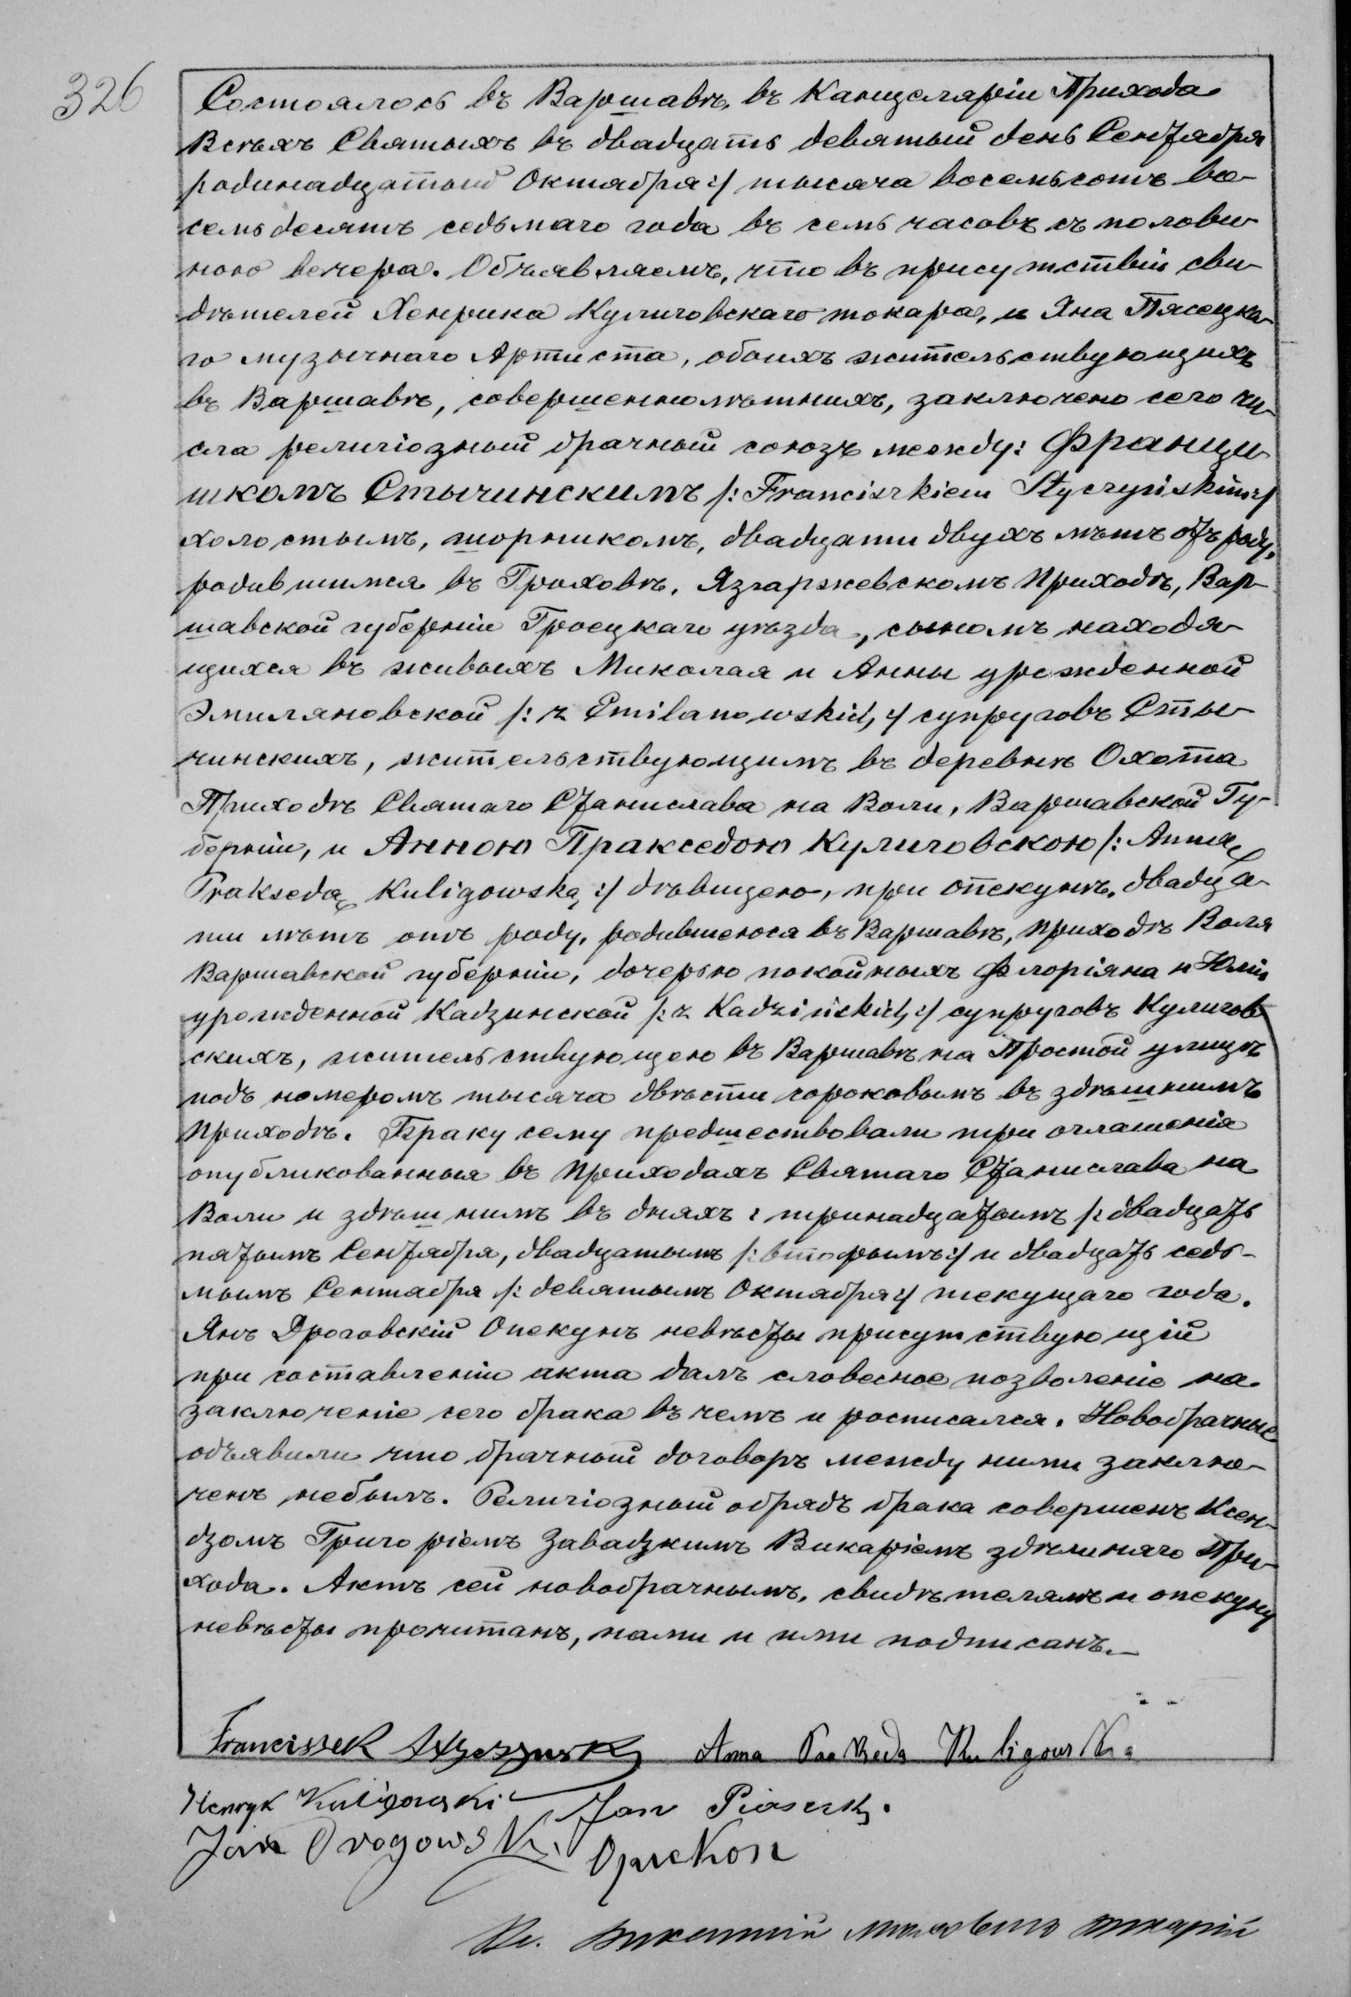 326
Состоялось въ Варшавѣ, въ Канцеляріи Прихода
Всѣхъ Святыхъ въ двадцать девятый день Сентября
/одинадцатый Октября:/ тысяча восемьсотъ во-
семьдесятъ седьмаго года въ семь часовъ съ полови-
ною вечера. Объявляемъ, что въ присутствіи сви-
дѣтелей Хенрика Кулиговскаго токаря, и Яна Пясецка-
го музычнаго Артиста, обоихъ жительствующихъ
въ Варшавѣ, совершеннолѣтнихъ, заключено сего чи-
сла религіозный брачный союзъ между: Францы-
шкомъ Стычинскимъ /: Franciszkiem Styczyńskim:/
холостымъ, шорникомъ, двадцати двухъ лѣтъ отъ роду,
родившимся въ Гроховѣ, Язгаржевскомъ Приходѣ, Вар-
шавской губерніи Гроецкаго уѣзда, сыномъ находя-
щихся въ живыхъ Миколая и Анны урожденной
Эмиляновской /: z Emilanowskich :/ супруговъ Сты-
чинскихъ, жительствующимъ въ деревнѣ Охота
Приходѣ Святаго Станислава на Воли, Варшавской Гу-
берніи, и Анною Пракседою Кулиговскою /: Anną
Praksedą Kuligowską :/ дѣвицею, при опекунѣ, двадца-
ти лѣтъ отъ роду, родившеюся въ Варшавѣ, приходѣ Воля
Варшавской губерніи, дочерью покойныхъ Флоріяна и Юліи
урожденной Кадзинской /: z Kadzińskich :/ супруговъ Кулигов-
скихъ, жительствующею въ Варшавѣ на Простой улицѣ
подъ номеромъ тысяча двѣсти сороковымъ въ здѣшнимъ
приходѣ. Браку сему предшествовали три оглашенія
опубликованныя въ приходахъ Святаго Станислава на
Воли и здѣшнимъ въ дняхъ: тринадцатымъ /: двадцать
пятымъ Сентября, двадцатымъ /: вторымъ:/ и двадцать седь-
мымъ Сентября /: девятымъ Октября:/ текущаго года.
Янъ Дроговскій Опекунъ невѣсты присутствующій
при составленіи акта далъ словесное позволеніе на
заключеніе сего брака въ чемъ и росписался. Новобрачные
объявили что брачный договоръ между ними заклю-
ченъ небылъ. Религіозный обрядъ брака совершенъ Ксен-
дзомъ Григоріемъ Завадзкимъ Викаріемъ здѣшняго При-
хода. Актъ сей новобрачнымъ, свидѣтелямъ и опекуну
невѣсты прочитанъ, нами и ими подписанъ.
Franciszek Styczynski Anna Prakseda Kuligowska
Henryk Kuligowski Jan Piasecki.
Jan Drogowski Opiekon
Кс. Викентій викарій